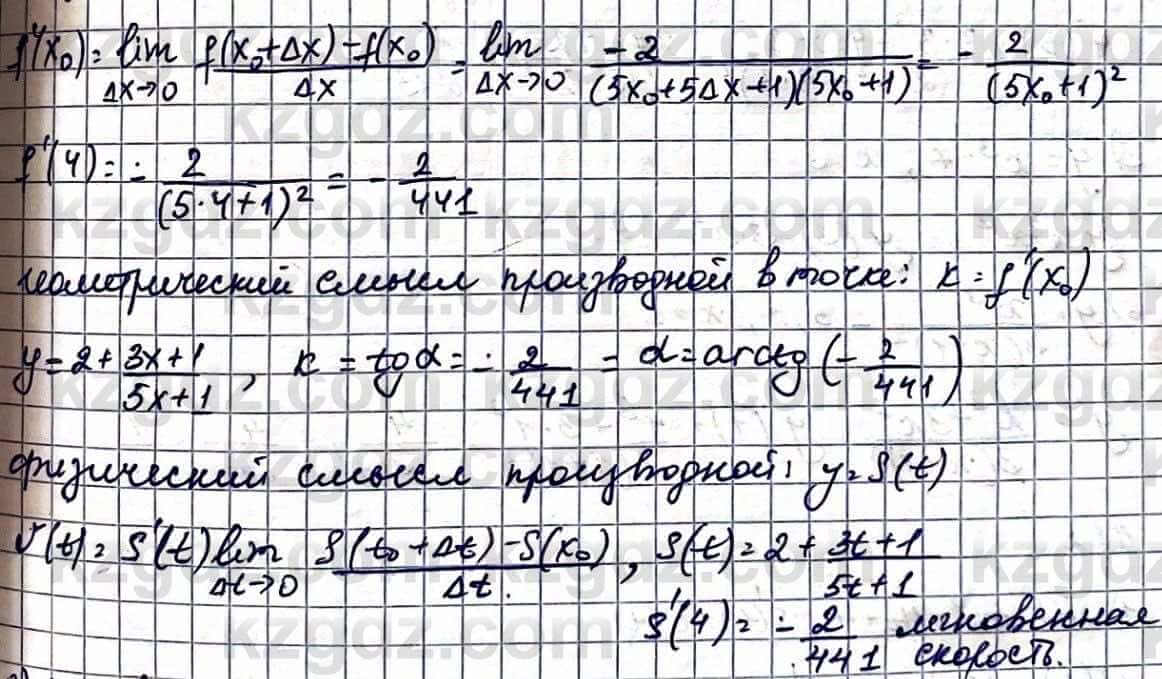 f'(x₀) = lim Δx→0 f(x₀+Δx) - f(x₀) / Δx = lim Δx→0 -2 / (5x₀+5Δx+1)(5x₀+1) = - 2 / (5x₀+1)²
f'(4) = - 2 / (5·4+1)² = - 2 / 441
геометрический смысл производной в точке: k = f'(x₀)
y = 2 + 3x+1 / 5x+1 , k = tgα = - 2 / 441 = α = arctg (- 2 / 441)
физический смысл производной: y = S(t)
v(t) = S'(t) lim Δt→0 S(t₀+Δt) - S(x₀) / Δt. , S(t) = 2 + 3t+1 / 5t+1
S'(4) = - 2 / 441 мгновенная
скорость.
kzgdz.com